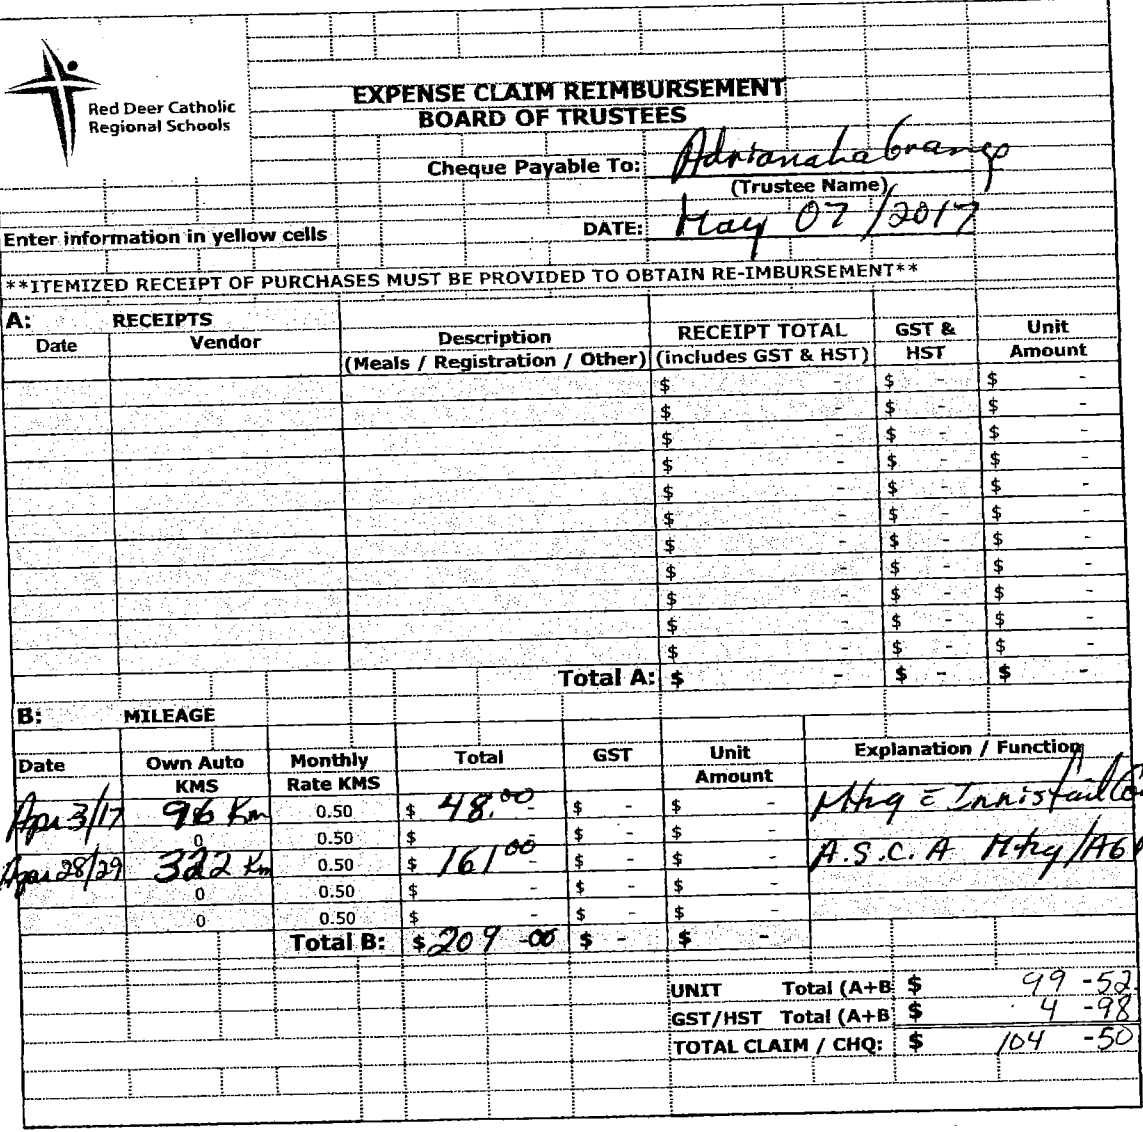 Red Deer Catholic
Regional Schools
EXPENSE CLAIM REIMBURSEMENT
BOARD OF TRUSTEES
Cheque Payable To: Adriana LaGrange
(Trustee Name)
Enter information in yellow cells
DATE: May 07/2017
**ITEMIZED RECEIPT OF PURCHASES MUST BE PROVIDED TO OBTAIN RE-IMBURSEMENT**
A: RECEIPTS
Date Vendor Description RECEIPT TOTAL GST & Unit
(Meals / Registration / Other) (includes GST & HST) HST Amount
$ - $ - $ -
$ - $ - $ -
$ - $ - $ -
$ - $ - $ -
$ - $ - $ -
$ - $ - $ -
$ - $ - $ -
$ - $ - $ -
$ - $ - $ -
$ - $ - $ -
$ - $ - $ -
Total A: $ - $ - $ -
B: MILEAGE
Date Own Auto Monthly Total GST Unit Explanation / Function
KMS Rate KMS Amount
Apr 3/17 96 Km 0.50 $ 48.00 - $ - $ - Mtng Innisfail
0 0.50 $ - $ - $ -
Apr 28/29 322 Km 0.50 $ 161 00 - $ - $ - A.S.C.A Mtng/AG
0 0.50 $ - $ - $ -
0 0.50 $ - $ - $ -
Total B: $ 209 -00 $ - $ -
UNIT Total (A+B $ 99 -52
GST/HST Total (A+B $ 4 -98
TOTAL CLAIM / CHQ: $ 104 -50